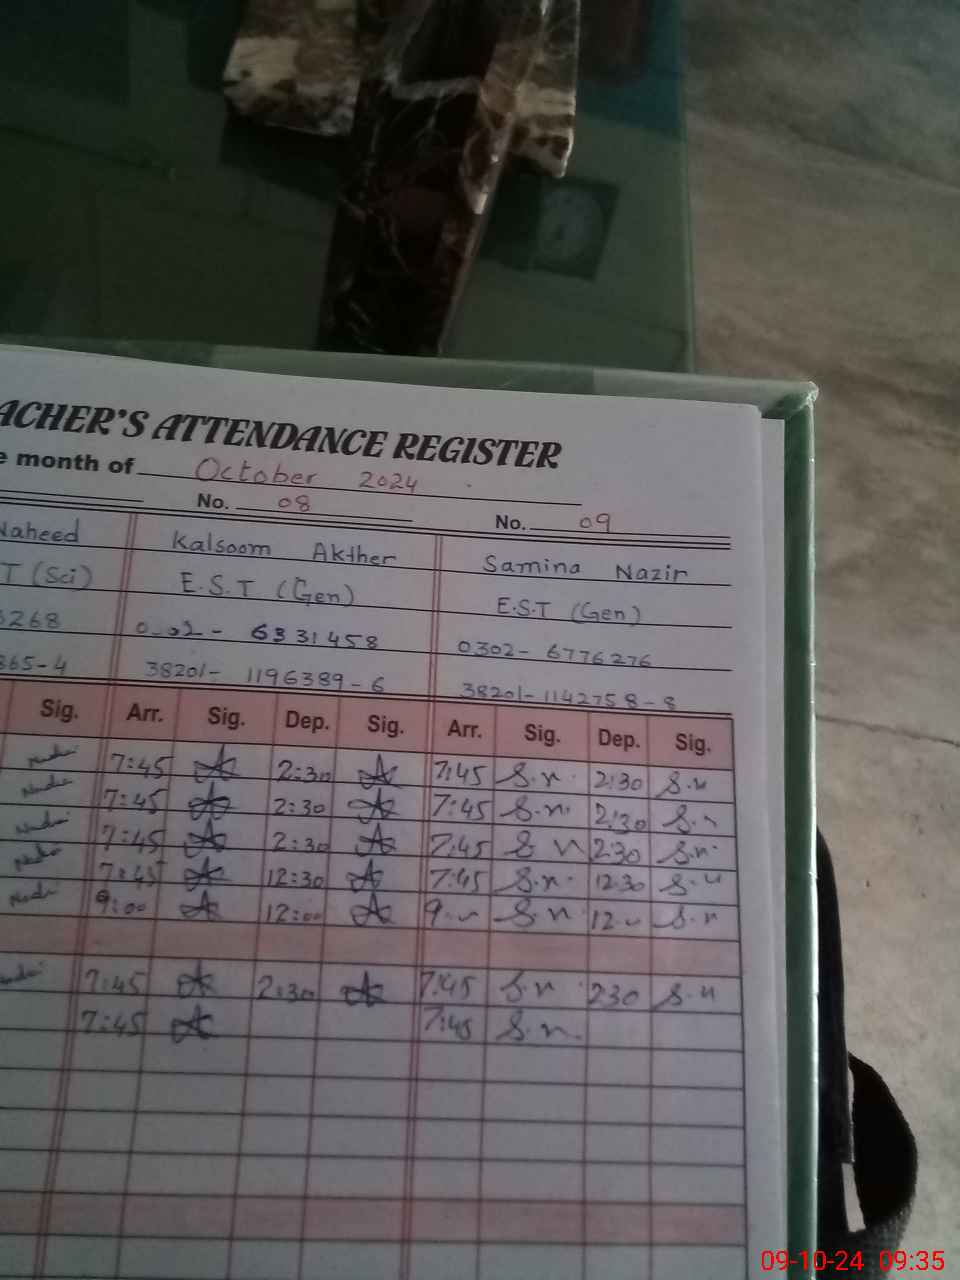 ACHER'S ATTENDANCE REGISTER
e month of October 2024
No. 08 No. 09
Naheed Kalsoom Akther Samina Nazir
T (Sci) E.S.T (Gen) E.S.T (Gen)
3268 6331458 0302-6776276
365-4 38201-1196389-6 38201-1142758-8
Sig. Arr. Sig. Dep. Sig. Arr. Sig. Dep. Sig.
7:45 2:30 7:45 S.n 2:30 S.n
7:45 2:30 7:45 S.n. 2:30 S.n
7:45 2:30 7:45 S n 2:30 S.n.
7:45 12:30 7:45 S.n. 12:30 S.n
9:00 12:00 9 S.n 12 S.n
7:45 2:30 7:45 S.n 2:30 S.n
7:45 7:45 S.n.
09-10-24 09:35